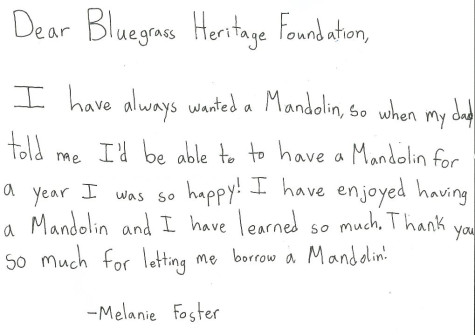 Dear Bluegrass Heritage Foundation,
I have always wanted a Mandolin, so when my dad
told me I'd be able to to have a Mandolin for
a year I was so happy! I have enjoyed having
a Mandolin and I have learned so much. Thank you
so much for letting me borrow a Mandolin!
-Melanie Foster